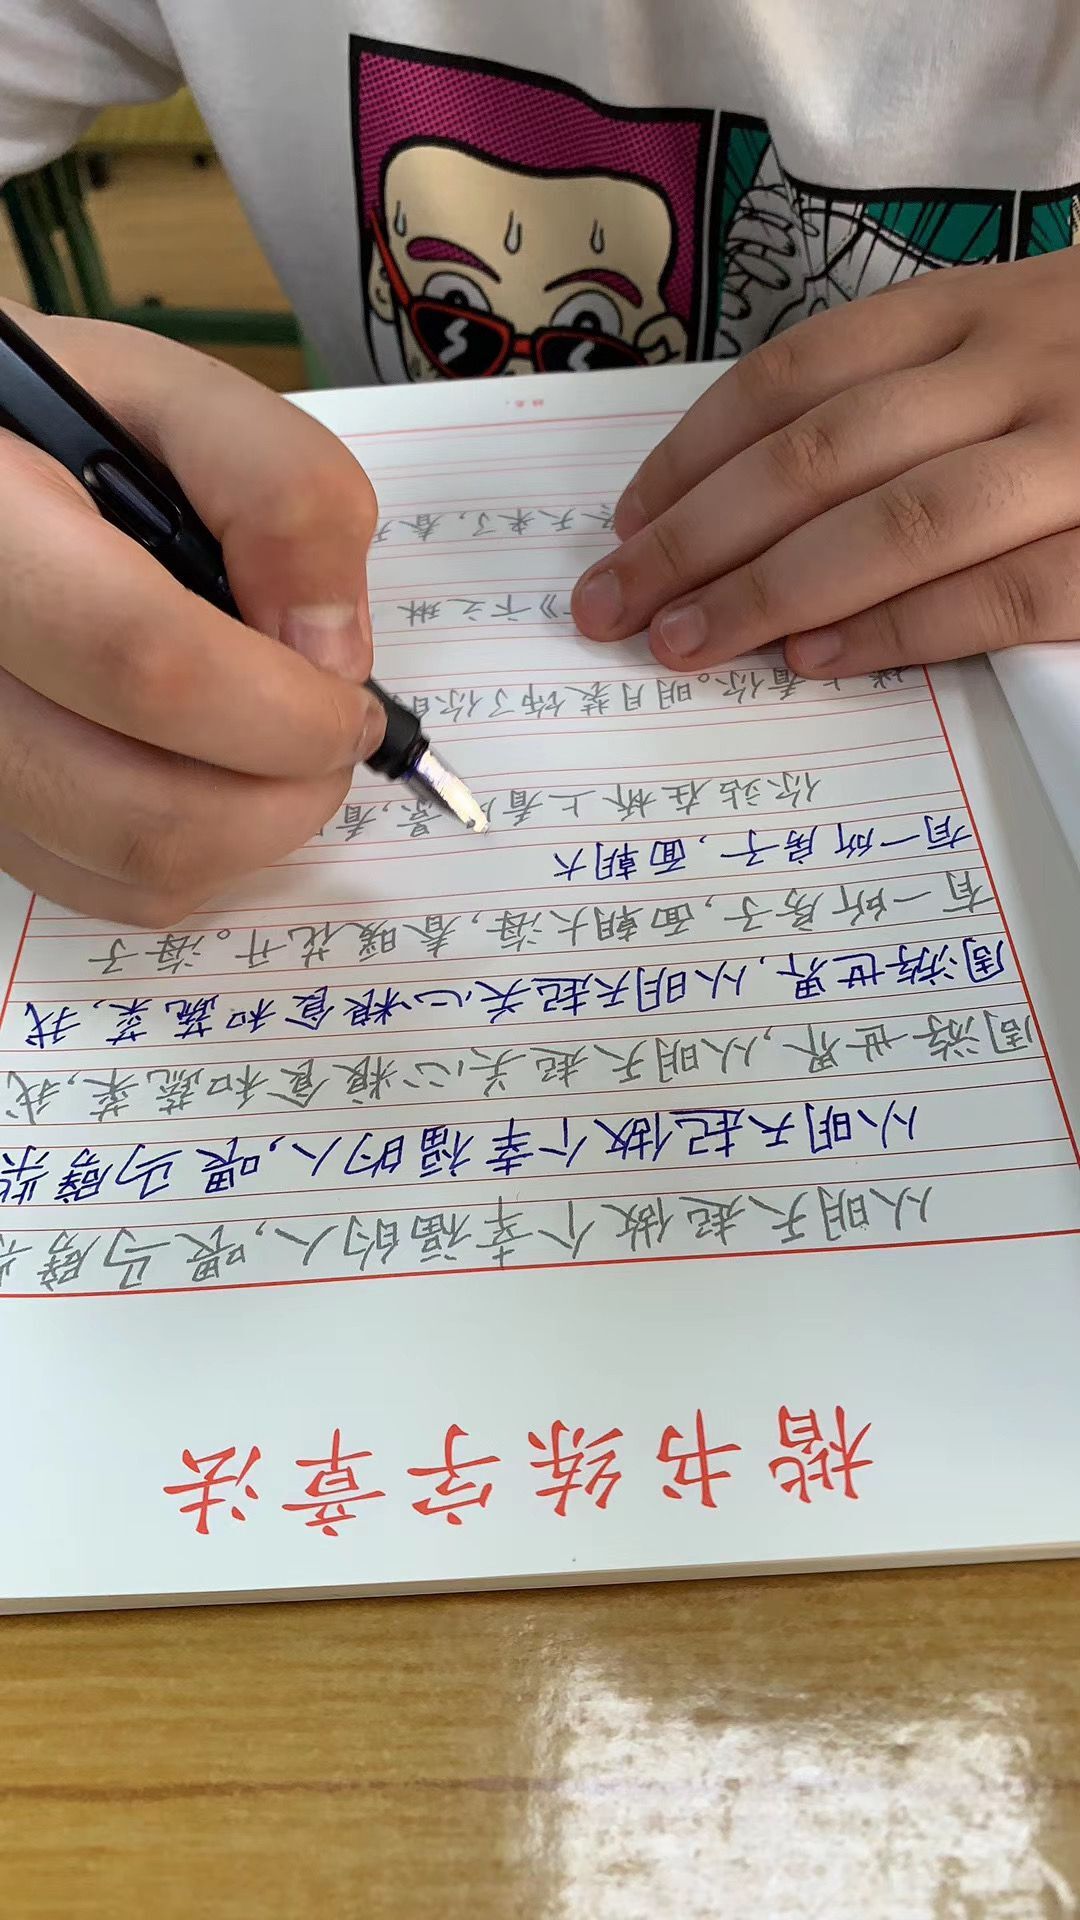 楷书练字章法
从明天起做个幸福的人，喂马劈柴
从明天起做个幸福的人，喂马劈柴
周游世界，从明天起关心粮食和蔬菜，我
周游世界，从明天起关心粮食和蔬菜，我
有一所房子，面朝大海，春暖花开。海子
有一所房子，面朝大
你站在桥上看 景，看
楼上看你。明月装饰了你的
》卞之琳
天来了，春天